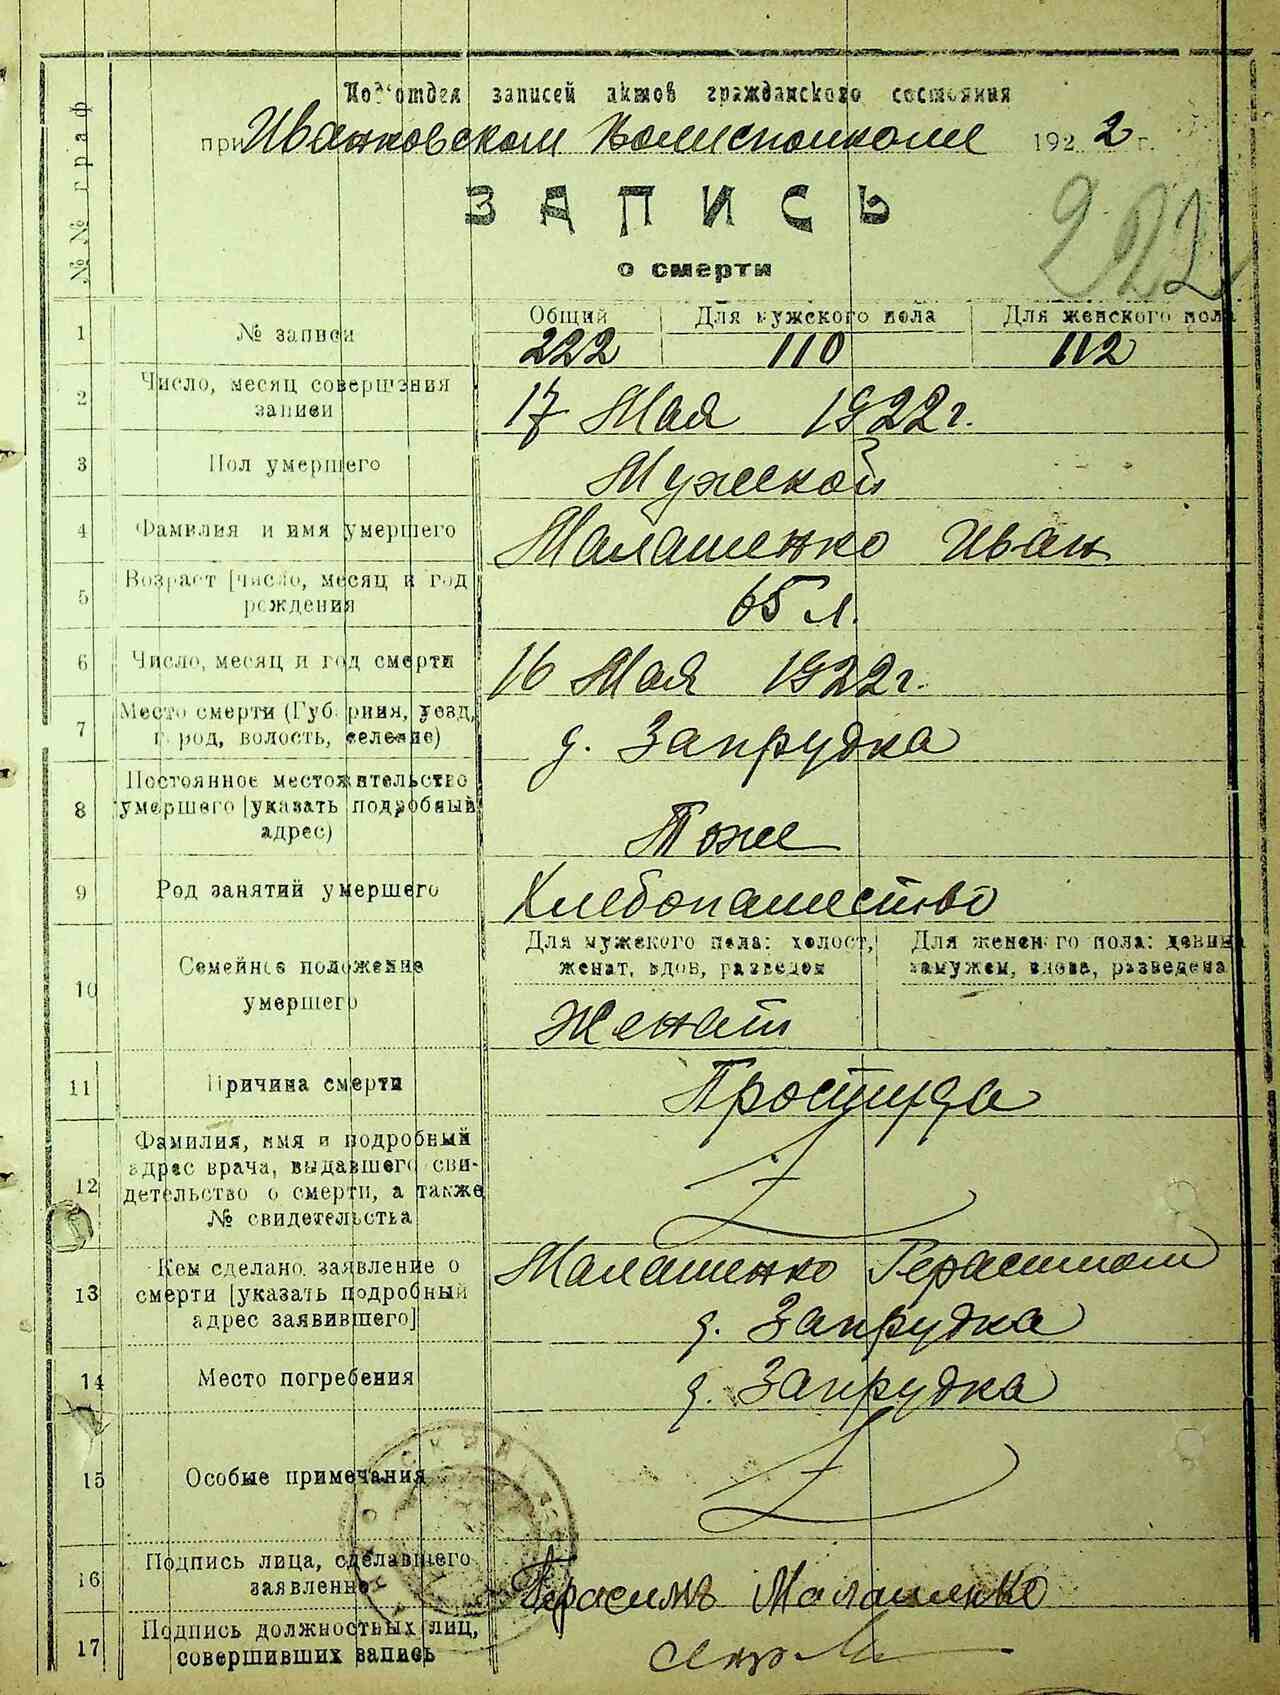 Под'отдел записей актов гражданского состояния
при Ивановском Волисполкоме 1922 г.
№№ граф
ЗАПИСЬ
о смерти
222
1 № записи Общий Для мужского пола Для женского пола
222 110 112
2 Число, месяц совершения записи
17 Мая 1922 г.
3 Пол умершего Мужской
4 Фамилия и имя умершего Малашенко Иван
5 Возраст [число, месяц и год
рождения 65 л.
6 Число, месяц и год смерти 16 Мая 1922 г.
7 Место смерти (Губерния, уезд,
город, волость, селение) д. Запрудка
8 Постоянное местожительство
умершего [указать подробный
адрес) Тоже
9 Род занятий умершего Хлебопашество
10 Семейное положение
умершего
Для мужского пола: холост,
женат, вдов, разведен
Для женского пола: девица
замужем, вдова, разведена
Женат
11 Причина смерти Простуда
12 Фамилия, имя и подробный
адрес врача, выдавшего сви-
детельство о смерти, а также
№ свидетельства
13 Кем сделано заявление о
смерти [указать подробный
адрес заявившего]
Малашенко Герасимом
д. Запрудка
14 Место погребения д. Запрудка
15 Особые примечания
16 Подпись лица, сделавшего
заявление Герасимъ Малашенко
17 Подпись должностных лиц,
совершивших запись